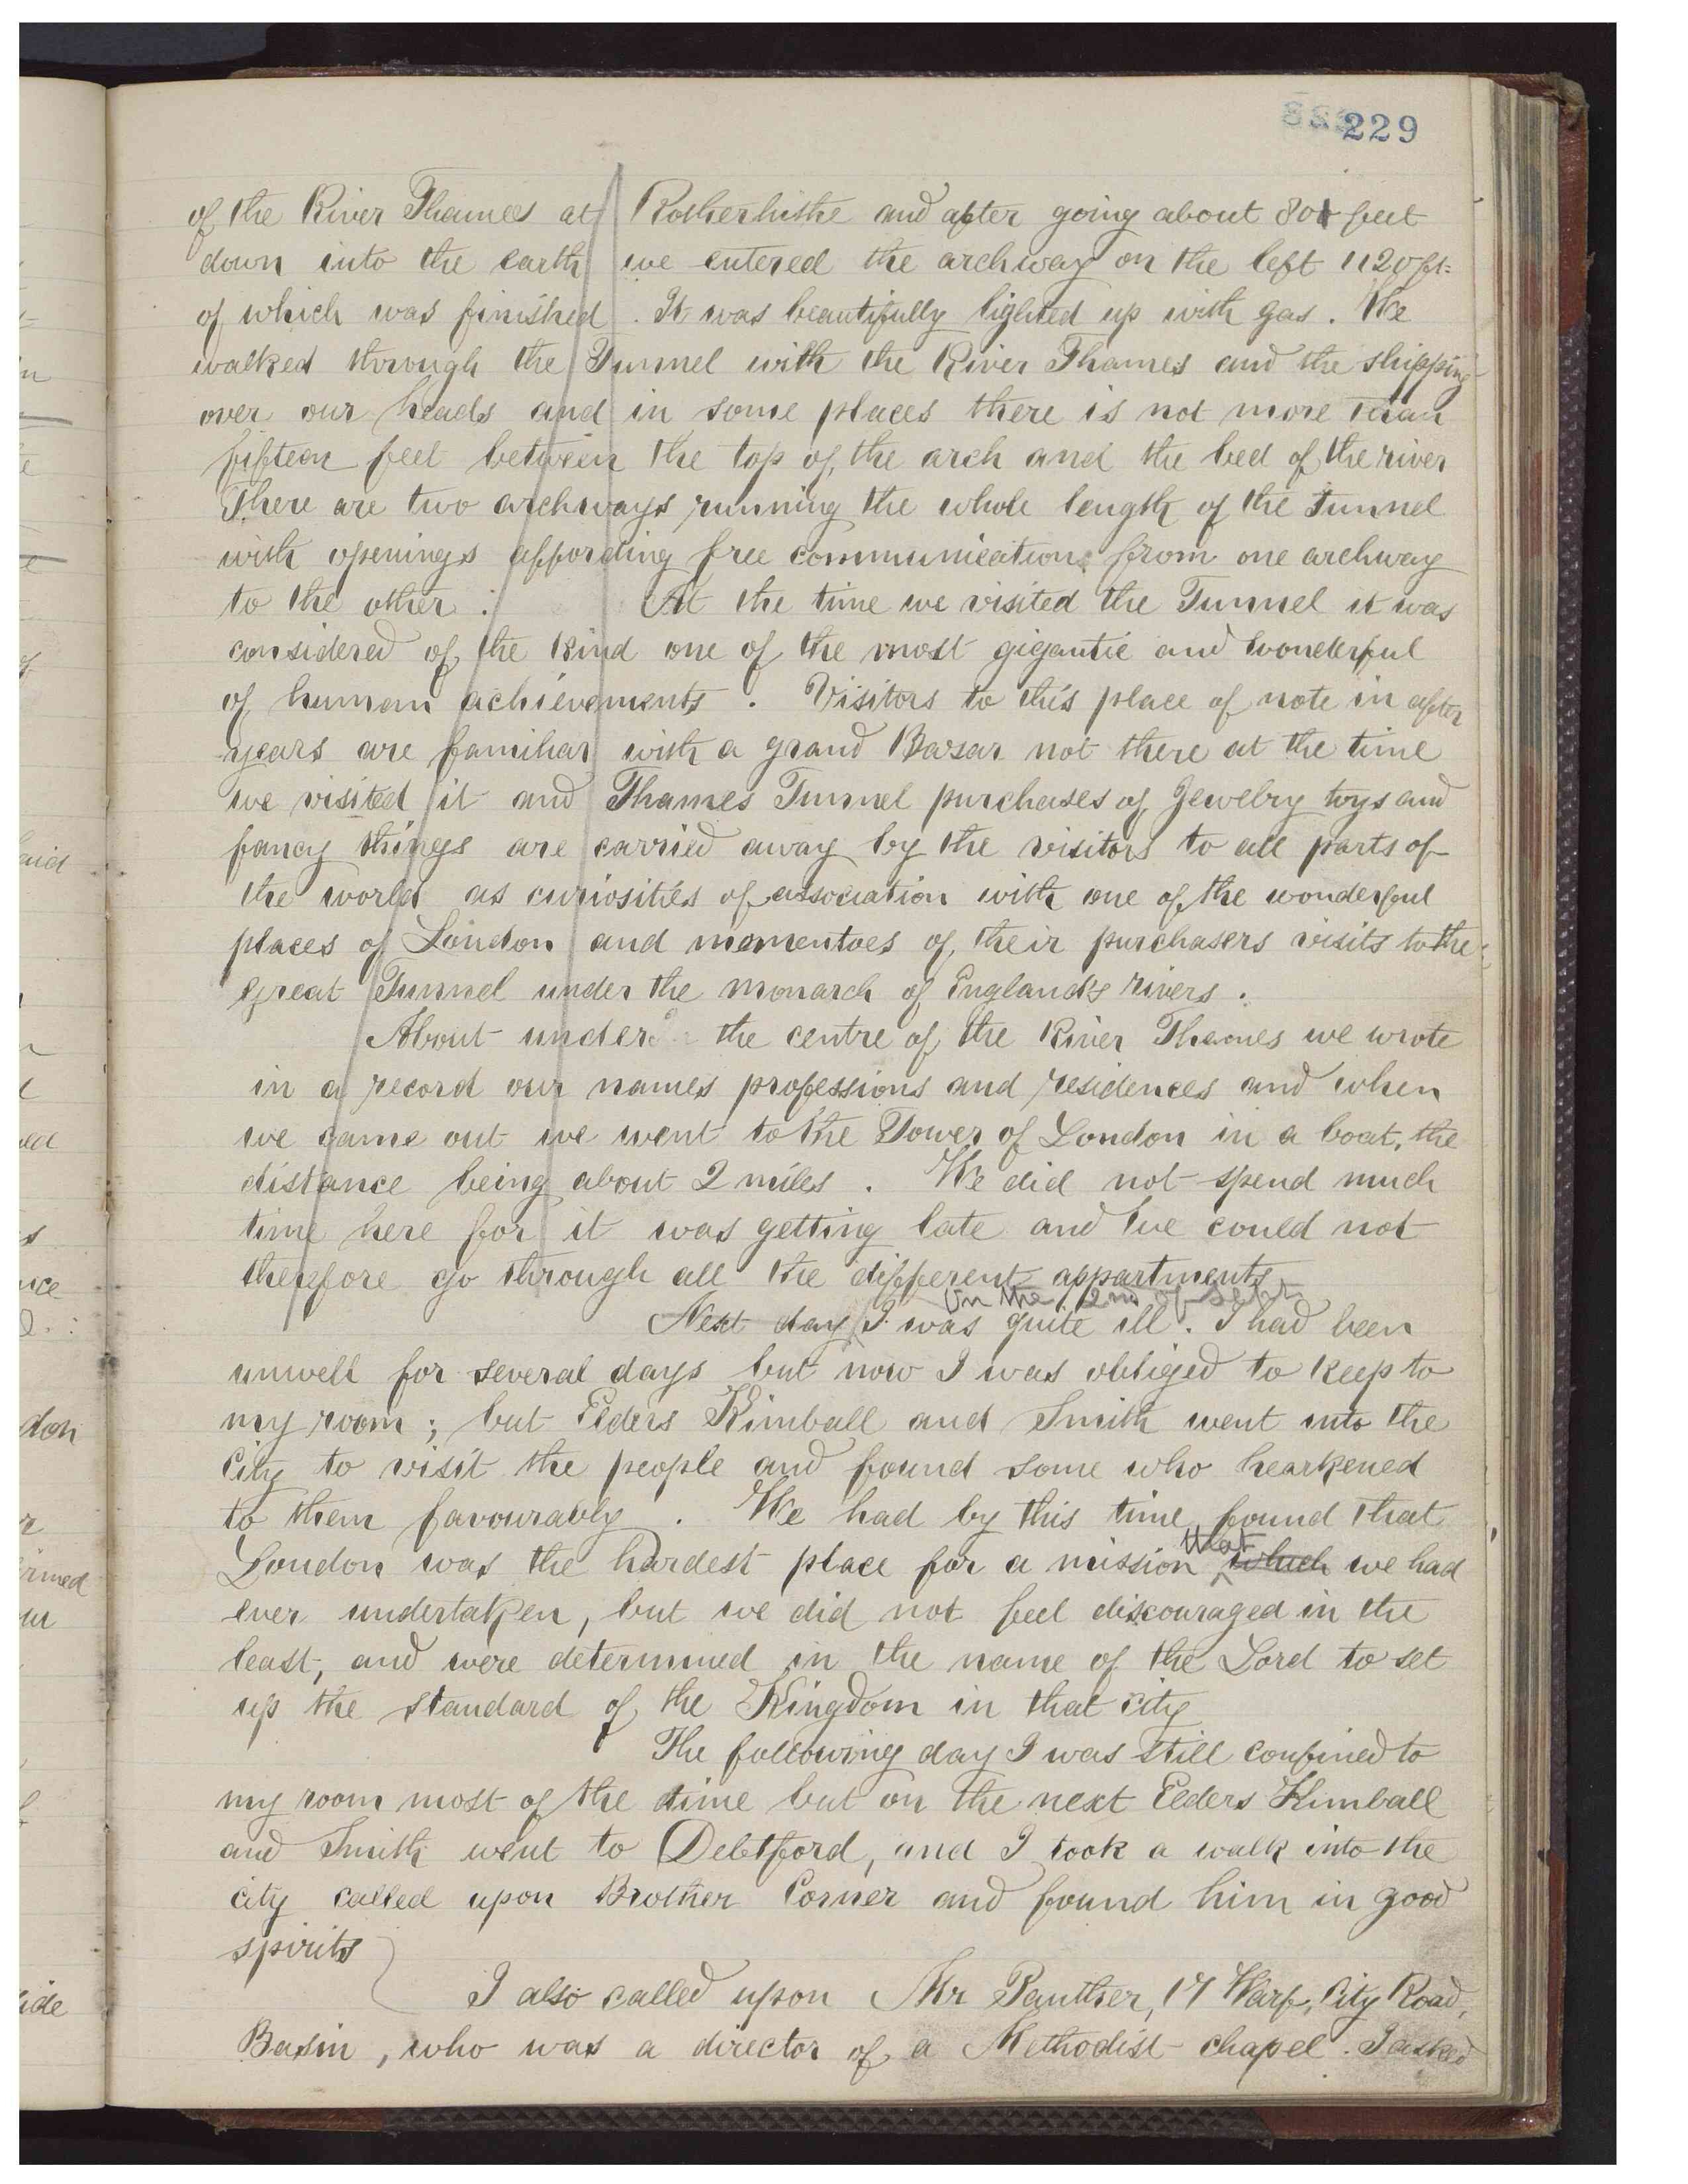 229
of the River Thames at Rotherhithe and after going about 80 feet
down into the earth we entered the archway on the left 1120 ft.
of which was finished. It was beautifully lighted up with gas. We
walked through the Tunnel with the River Thames and the shipping
over our heads and in some places there is not more than
fifteen feet between the top of the arch and the bed of the river
There are two archways running the whole length of the Tunnel
with openings affording free communication from one archway
to the other. At the time we visited the Tunnel it was
considered of the kind one of the most gigantic and wonderful
of human achievements. Visitors to this place of note in after
years are familiar with a grand Bazar not there at the time
we visited it and Thames Tunnel purchases of Jewelry toys and
fancy things are carried away by the visitors to all parts of
the world as curiosities of association with one of the wonderful
places of London and momentoes of their purchasers visits to the
great Tunnel under the monarch of England's rivers.
About under the centre of the River Thames we wrote
in a record our names professions and residences and when
we came out we went to the Tower of London in a boat, the
distance being about 2 miles. We did not spend much
time here for it was getting late and we could not
therefore go through all the different appartments
On the 2nd of Sept
Next day I was quite ill. I had been
unwell for several days but now I was obliged to keep to
my room; but Elders Kimball and Smith went into the
City to visit the people and found some who hearkened
to them favourably. We had by this time found that
London was the hardest place for a mission that which we had
ever undertaken, but we did not feel discouraged in the
least, and were determined in the name of the Lord to set
up the standard of the Kingdom in that city
The following day I was still confined to
my room most of the time but on the next Elders Kimball
and Smith went to Debtford, and I took a walk into the
city called upon Brother Corner and found him in good
spirits
I also called upon Mr Panther, 17 Warf, City Road,
Basin, who was a director of a Methodist chapel. I asked